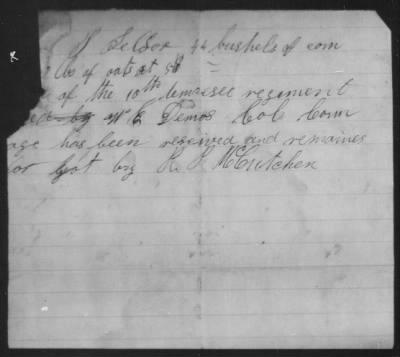 44 bushels of corn
lbs of oats at 50 =
of the 10th tennessee regiment
by Demos Col Comm
age has been received and remaines
or got by R. P. McCutchen